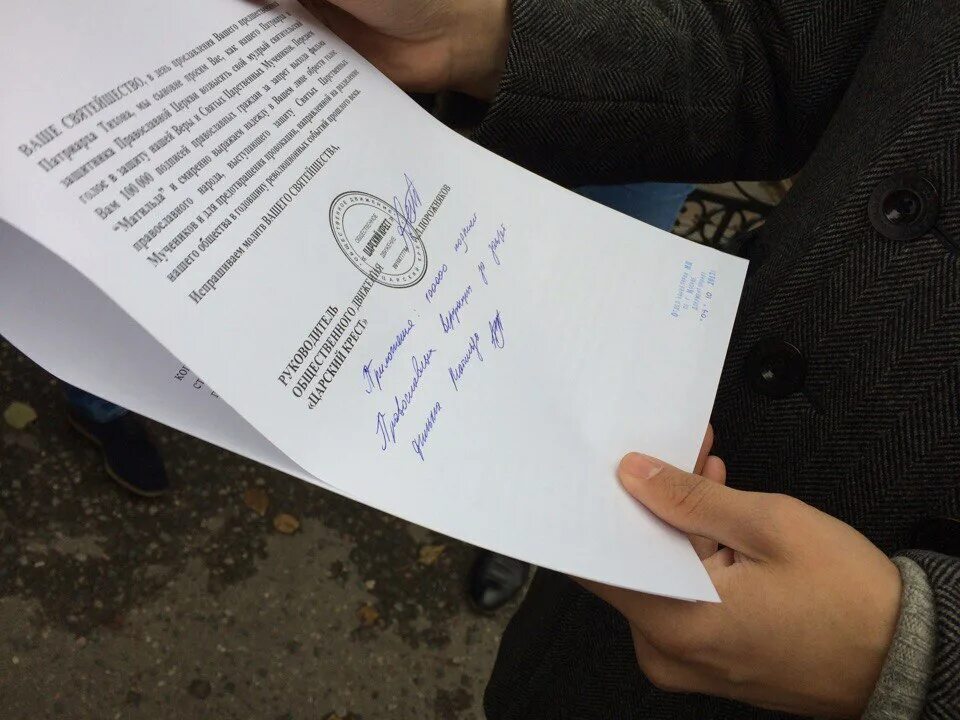 ВАШЕ СВЯТЕЙШЕСТВО, в день прославления Вашего предшественника
Патриарха Тихона, мы сыновне просим Вас, как нашего Патриарха и
защитника Православной Церкви возвысить свой мудрый святительский
голос в защиту нашей Веры и Святых Царственных Мучеников. Передаем
Вам 100 000 подписей православных граждан за запрет выхода фильма
"Матильда" и смиренно выражаем надежду в Вашем лице обрести глас
православного народа, выступающего защиту Святых Царственных
Мучеников и для предотвращения провокации, направленной на разделение
нашего общества в годовщину революционных событий прошлого века.
Испрашиваем молитв ВАШЕГО СВЯТЕЙШЕСТВА,
РУКОВОДИТЕЛЬ
ОБЩЕСТВЕННОГО ДВИЖЕНИЯ
«ЦАРСКИЙ КРЕСТ»
ПОРОЖНЯКОВ
ОБЩЕСТВЕННОЕ
ДВИЖЕНИЕ
ЦАРСКИЙ КРЕСТ
Приложения: 100000
Православных
фильма Матильда